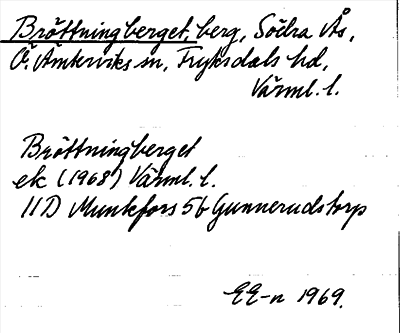 Bröttningberget berg, Södra Ås,
Ö. Ämterviks sn, Fryksdals hd,
Värml. l.
Bröttningberget
ek (1968) Värml. l.
11D Munkfors 5b Gunnerudstorp
EE-n 1969.